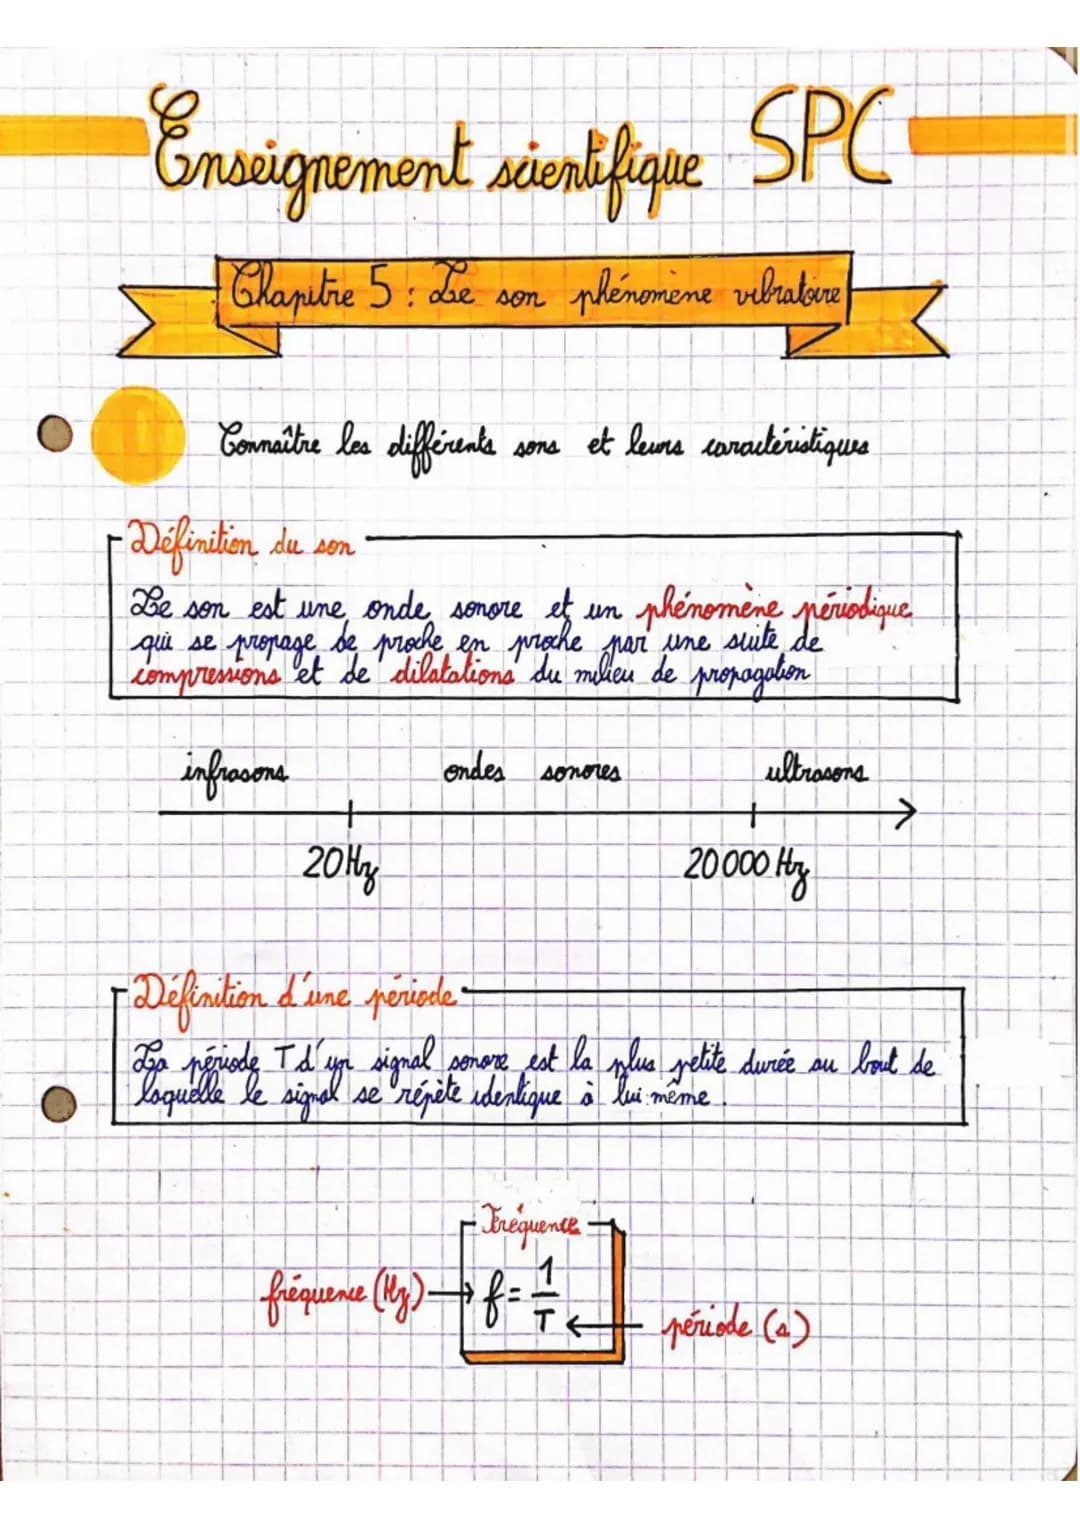 Enseignement scientifique SPC
Chapitre 5 : Le son phénomène vibratoire
1
Connaître les différents sons et leurs caractéristiques
Définition du son
Le son est une onde sonore et un phénomène périodique
qui se propage de proche en proche par une suite de
compressions et de dilatations du milieu de propagation
infrasons ondes sonores ultrasons
20 Hz 20 000 Hz
Définition d'une période
La période T d'un signal sonore est la plus petite durée au bout de
laquelle le signal se répète identique à lui-même.
Fréquence
fréquence (Hz) → f = 1/T ← période (s)